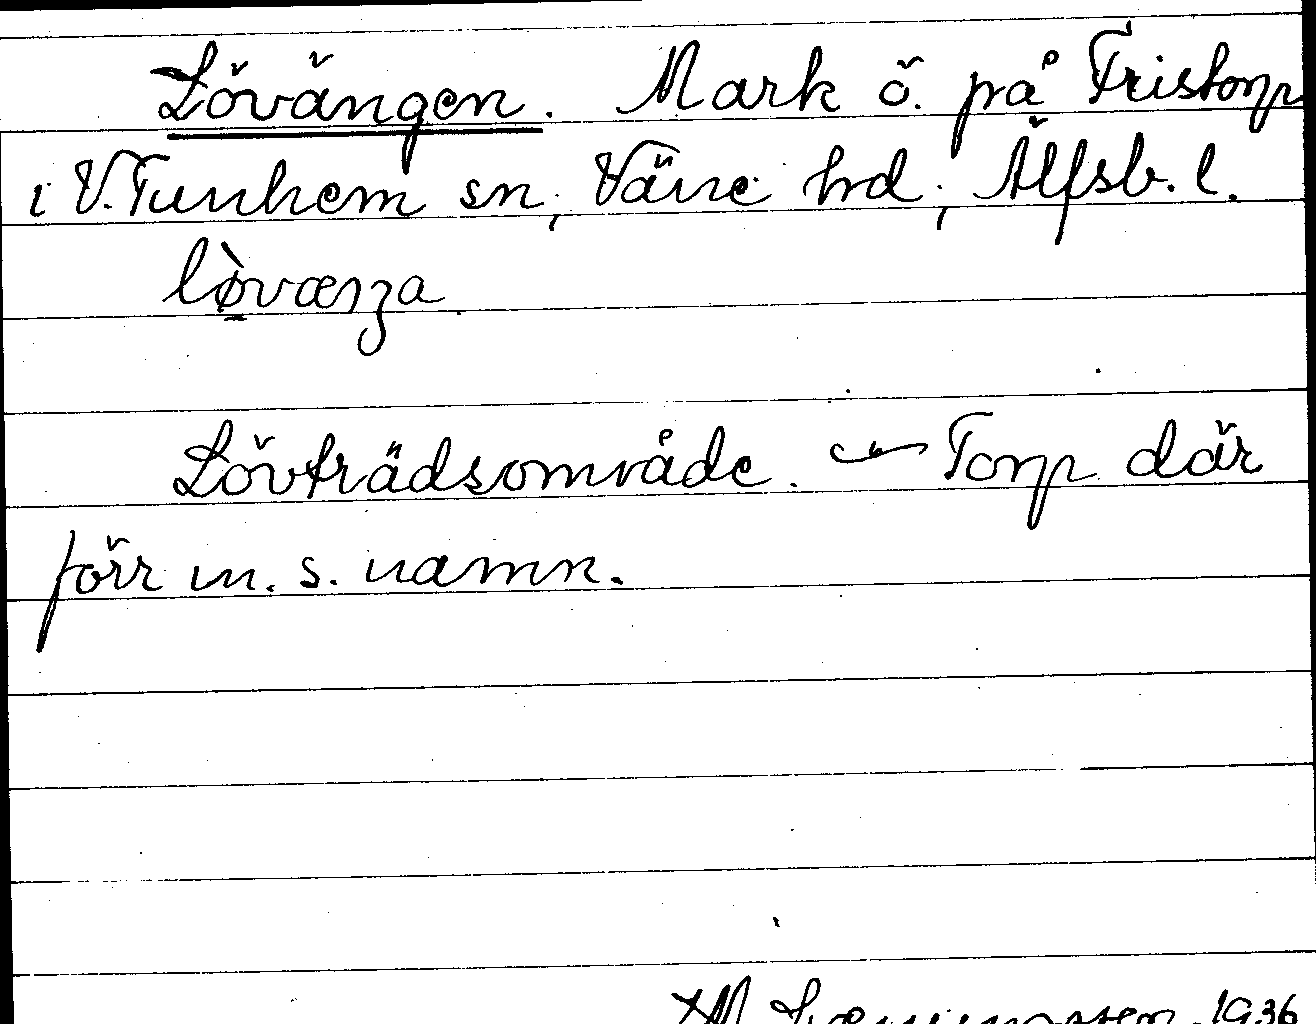 Lövängen. Mark ö. på Fristorp
i V. Tunhem sn, Väne hd, Älfsb. l.
lø̀væŋʒa
Lövträdsområde. Torp där
förr m. s. namn.
1936